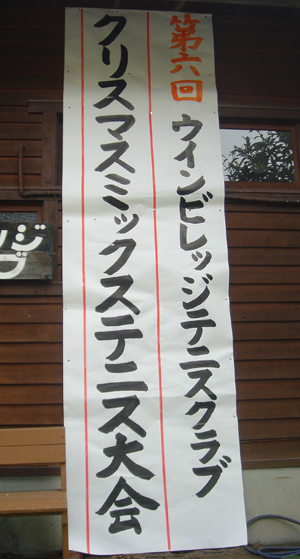 第六回 ウインビレッジテニスクラブ
クリスマスミックステニス大会